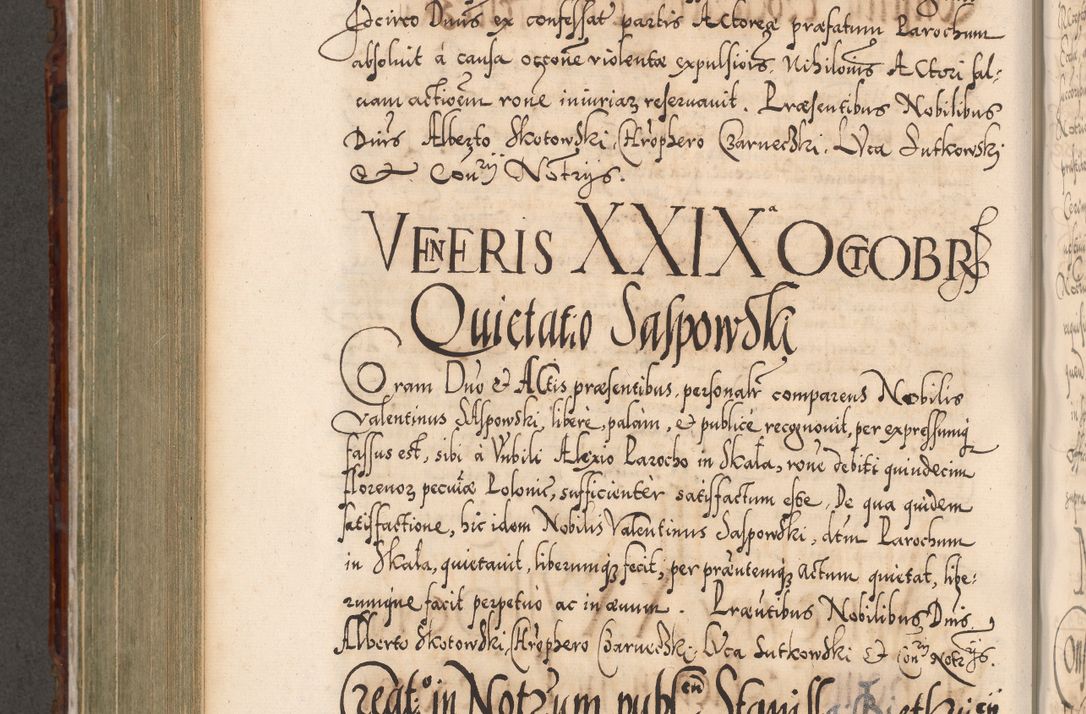 Idcirco Dnus ex confessat partis Actoreæ præfatum Parochum
absoluit á causa occõne violentæ expulsiois. Nihilouis Actori sal-
uam actioem rone iniuriaꝝ reseruauit. Præsentibus Nobilibus
Dnis Alberto Skotowski, Chrophero Czarnecski, Luca Sutkowski
& Conrij Notrijs.
VENERIS XXIXª OCTOBR
Quietatio Saspowski
Coram Dno & Actis præsentibus, personalr comparens Nobilis
Valentinus Saspowski, liberè, palam, & publicè recognouit, per expressumq
fassus est, sibi á Nubili Alexio Parocho in Skała, rone debiti quindecim
florenoꝝ pecuiæ Polonic, sufficientèr satisfactum esse. De qua quidem
satisfactione, hic idem Nobilis Valentinus Saspowski, dtm Parochum
in Skała, quietauit, liberumqꝫ fecit, per præntemqꝫ Actum quietat, libe-
rumque facit perpetuo ac in æuum. Præntibus Nobilibus Dnis
Alberto Skotowski, Chrophero Czarnecski, Luca Sutkowski & Conrij Notrijs.
Creatº in Not